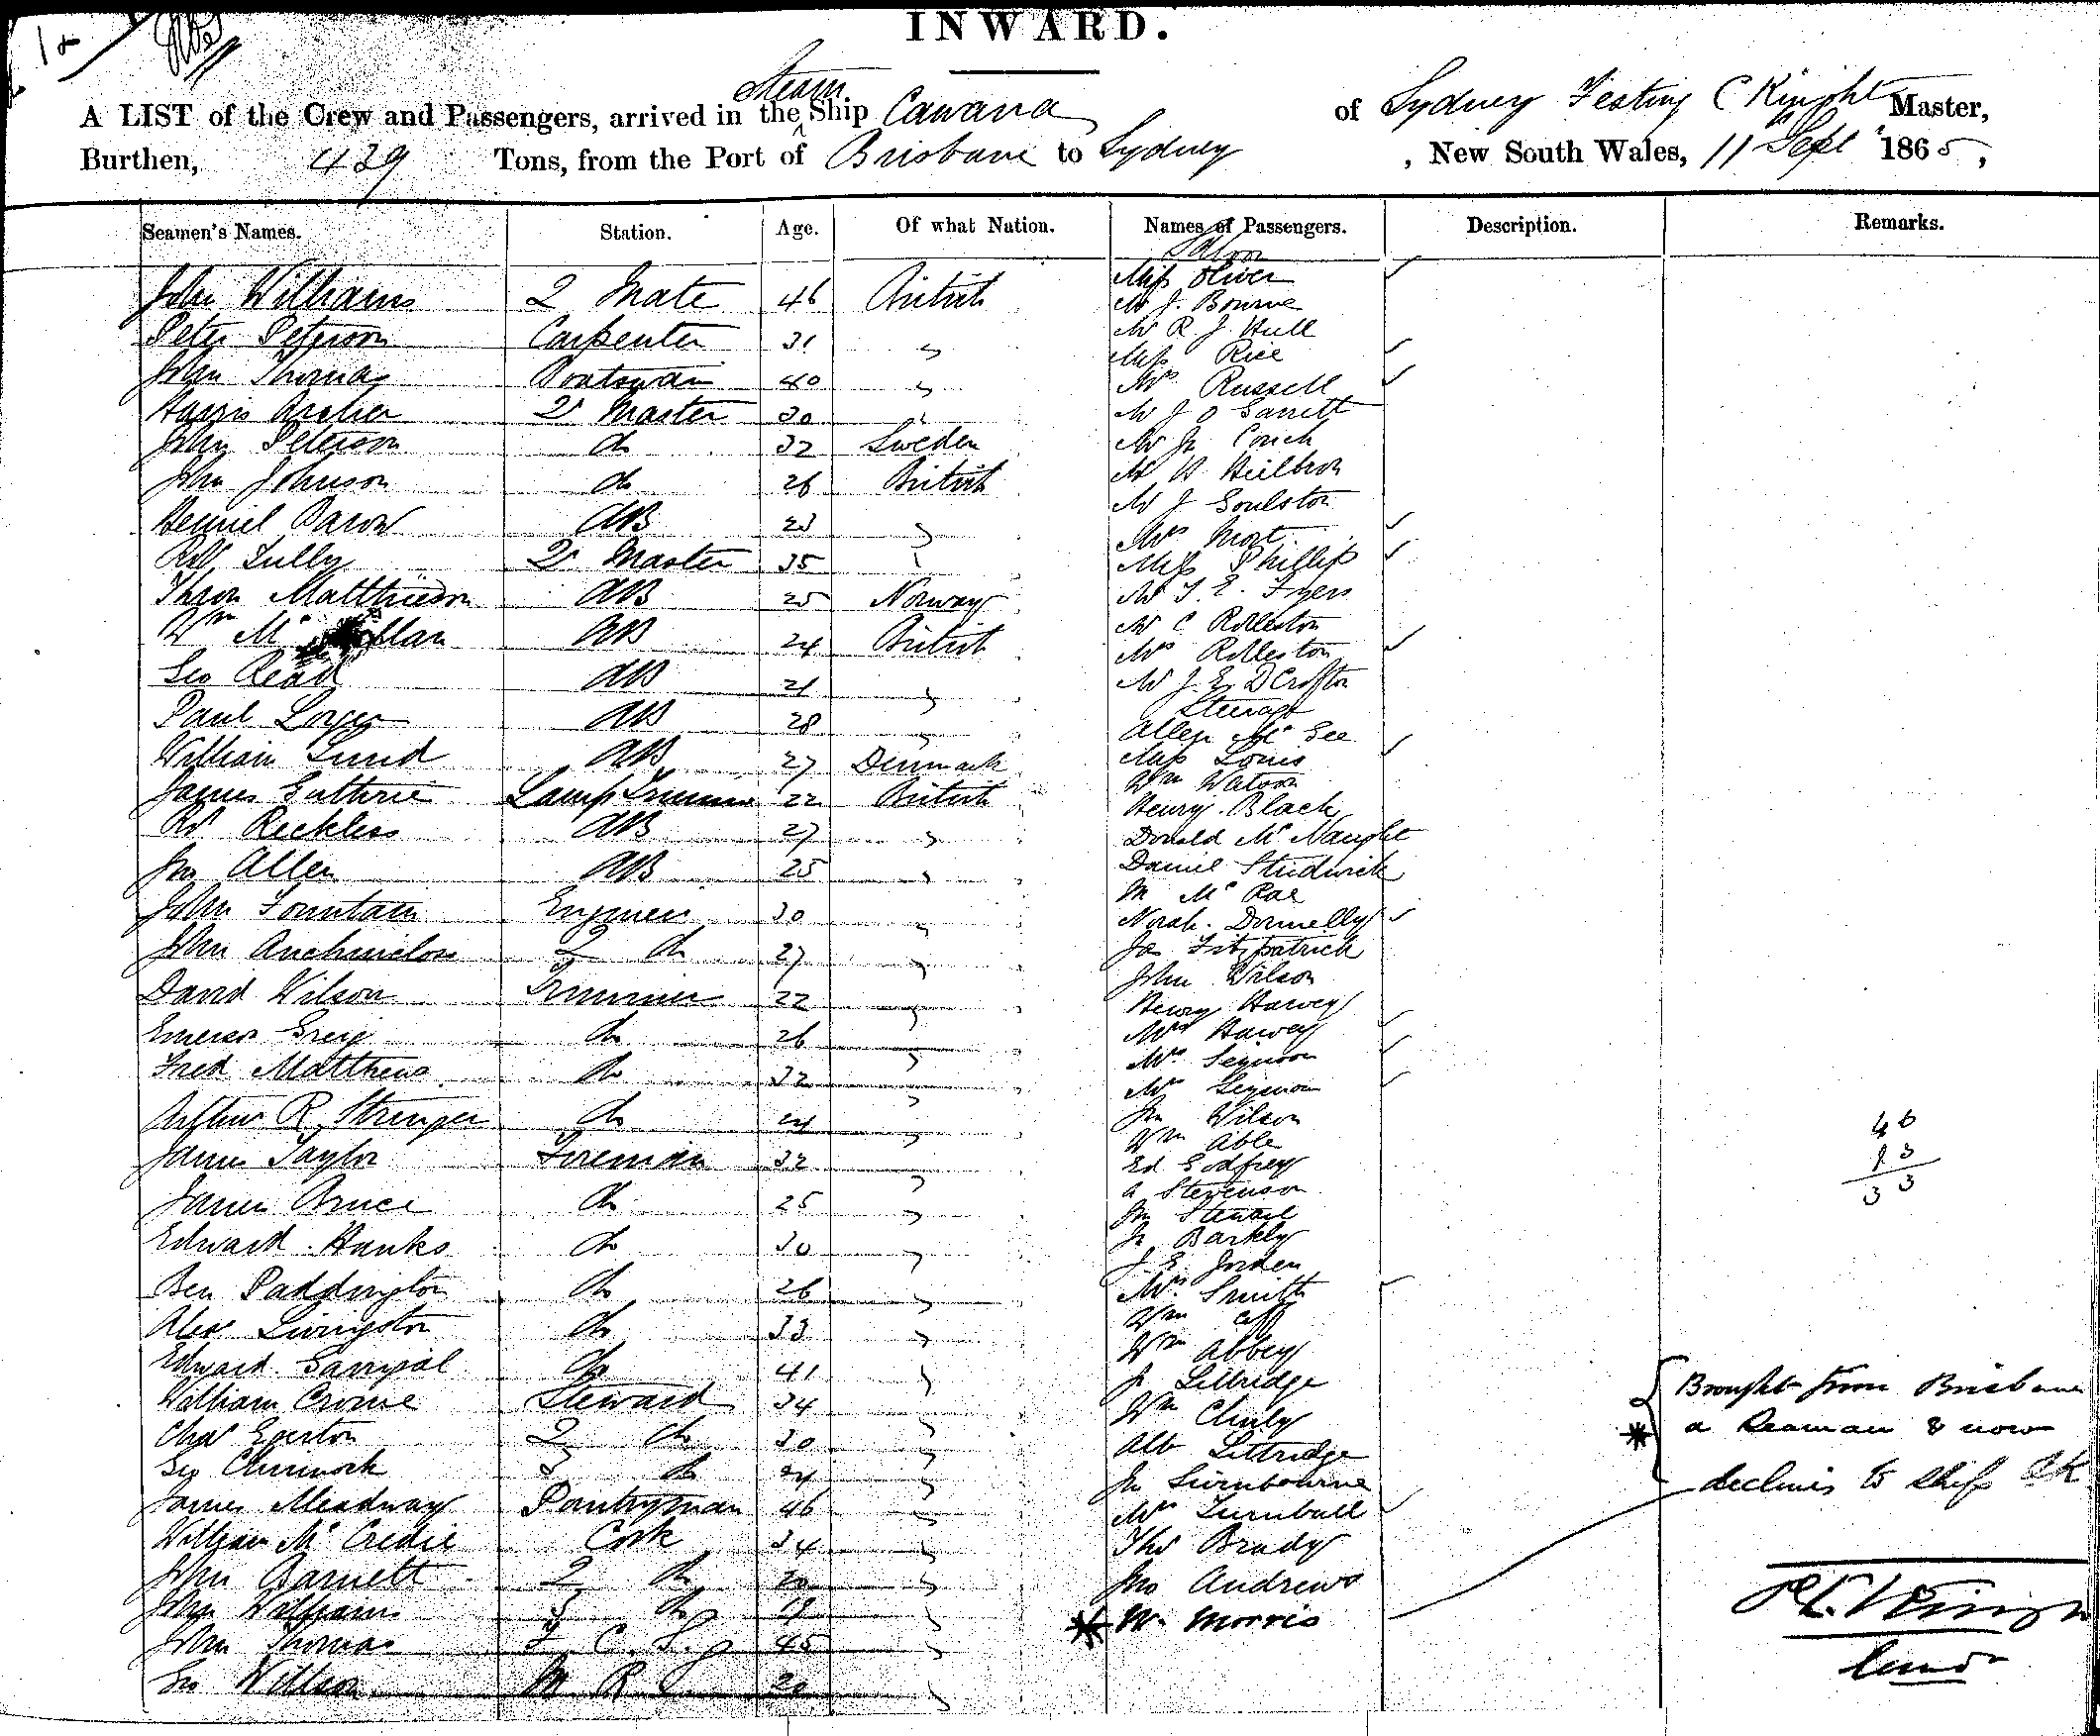 INWARD.
A LIST of the Crew and Passengers, arrived in the Steam Ship Cawana of Sydney Festing C Knight Master,
Burthen, 439 Tons, from the Port of Brisbane to Sydney, New South Wales, 11 Sept 1865,
Seamen's Names. Station. Age. Of what Nation. Names of Passengers. Description. Remarks.
John Williams 2 Mate 46 British
Peter Peterson Carpenter 31 "
John Thomas Boatswain 40 "
Harris Archer Qr Master 30 "
John Peterson do 32 Sweden
John Johnson do 26 British
Baron AB 23 "
Robt Tully Qr Master 35 "
Thron Matthieson AB 25 Norway
Wm Mc AB 24 British
Geo Read AB 21 "
Paul AB 28 "
William Lund AB 27 Denmark
James Guthrie Lamp Trimmer 22 British
Rd Reckless AB 27 "
Jno Allen AB 25 "
John Fountain Engineer 30 "
John 2 do 27 "
David Wilson Trimmer 22 "
Greig do 26 "
Fred Matthews do 32 "
Arthur R Stringer do 24 "
James Taylor Fireman 32 "
James Bruce do 25 "
Edward Hanks do 30 "
Ben Paddington do 26 "
Alex Livingston do 33 "
Edward do 41 "
William Crowe Steward 34 "
Chas Egerton 2 do 30 "
Geo Chinnock 3 do 24 "
James Meadway Pantryman 46 "
William Mc Credie Cook 34 "
John Barnett 2 do 20 "
John Williams 3 do 19 "
John Thomas F. C. S. 45 "
Geo Wilson 20 "
Saloon
Miss Oliver
Mr J. Bourne
Mr R. J. Hull
Miss Rice
Mrs Russell
Mr J O Garrett
Mr Jn Couch
Mr H Heilbron
Mr J Goulston
Mrs Mort
Miss Phillips
Mr T. E. Fryers
Mr C Rolleston
Mrs Rolleston
Mr J. E. D Crofton
Steerage
Allen Mc Gee
Miss Louis
Wm Watson
Henry Black
Donald Mc Naught
Daniel Studwick
M Mc Rae
Norah Donnelly
Jas Fitzpatrick
John Wilson
Henry Harvey
Mrs Harvey
Mrs Seymour
Mr Seymour
Jn Wilson
Wm Able
Ed Godfrey
A Stevenson
Jn Stewart
Jn Barkly
J E Jorden
Mrs Smith
Wm
Wm Abbey
J Littridge
Wm
Alb Littridge
Jn Swinbourne
Mrs Turnbull
Thos Brady
Jno Andrews
* W. Morris
46
13
33
* Brought from Brisbane
a Seaman & now
declines to ship